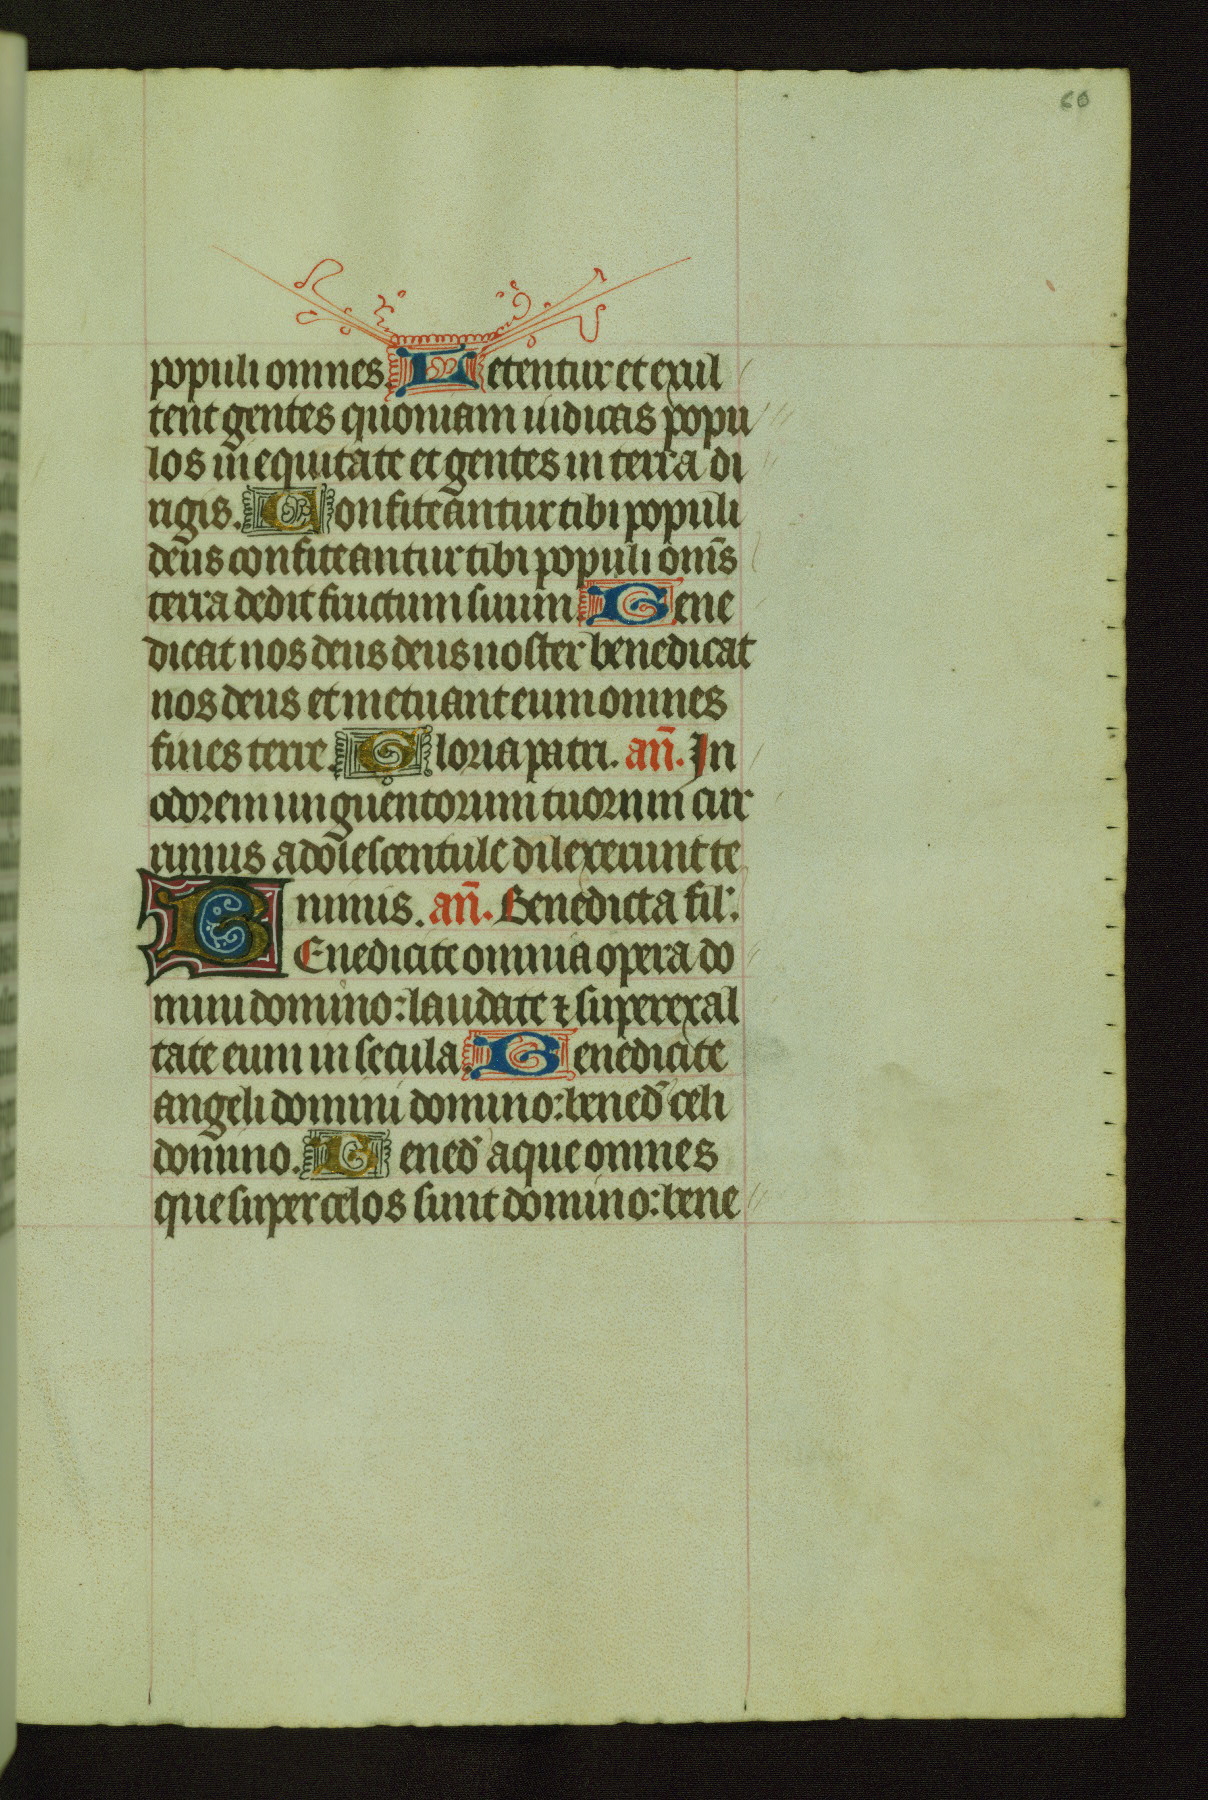 60
populi omnes. Letentur et exul
tent gentes quoniam iudicas popu
los in equitate et gentes in terra di
rigis. Confiteantur tibi populi
deus confiteantur tibi populi om̄s
terra dedit fructum suum. Bene
dicat nos deus deus noster benedicat
nos deus et metuant eum omnes
fines terre. Gloria patri. an̄. In
odorem unguentorum tuorum cur
rimus adolescentule dilexerunt te
nimis. an̄. Benedicta fil'.
BEnedicite omnia opera do
mini domino: laudate ⁊ superexal
tate eum in secula. Benedicite
angeli domini domino: bened̄ celi
domino. Bened̄ aque omnes
que super celos sunt domino: bene